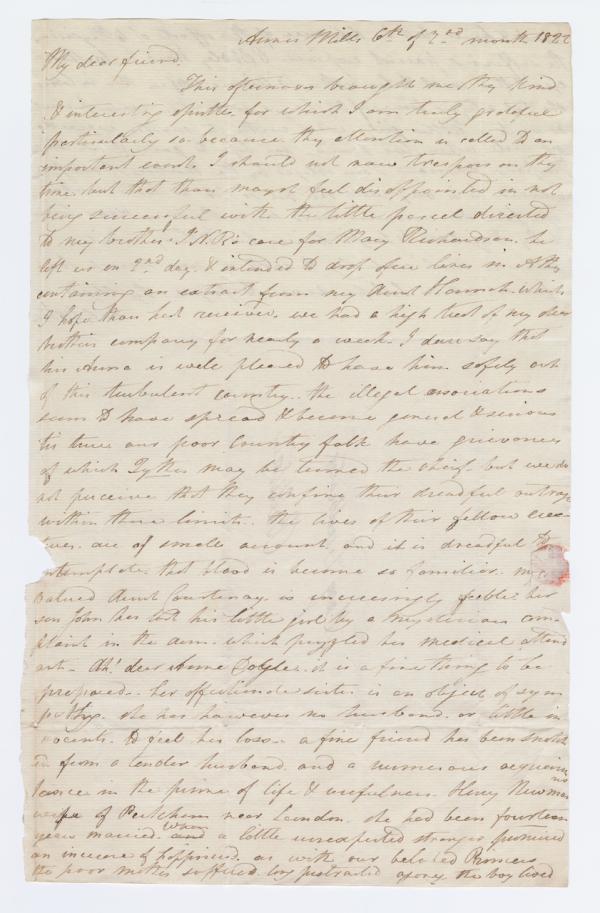 Annes Mills 6th of 2nd month 1822
My dear friend.
This afternoon brought me thy kind
& interesting epistle, for which I am truly grateful
particularly so because thy attention is called to an
important event. I should not now trespass on thy
time but that thou mayst feel disappointed in not
being successful with the little parcel directed
to my brother J. N. R's care for Mary Richardson. he
left us on 2nd day, & intended to drop few lines in Athy
containing an extract from my Aunt Hannah which
I hope thou hast received. we had a high treat of my dear
brothers company for nearly a week. I dare say that
his Anna is well pleased to have him safely out
of this turbulent country. the illegal associations
seem to have spread & become general & serious
tis true our poor Country folk have grievances
of which Tythes may be termed the chief but we do
not perceive that they confine their dreadful outrage
within these limits. the lives of their fellow crea
tures are of small account, and it is dreadful to
ntemplate that blood is become so familiar. my
valued Aunt Courtenay is increasingly feeble. her
son John has lost his little girl by a mysterious com
plaint in the arm, which puzzled her medical attend
ant. Ah! dear Anne Doyle. it is a fine thing to be
prepared. her affectionate sister is an object of sym
pathy. she has however no husband, or little in
nocents. to feel her loss. a fine friend has been snatch
ed from a tender husband, and a numerous acquain
tance in the prime of life & usefulness. Henry Newmans
wife of Peckham near London. she had been fourteen
years married when a little unexpected stranger promised
an increase of happiness. as with our beloved Princess
the poor mother suffered long protracted agony. the boy lived